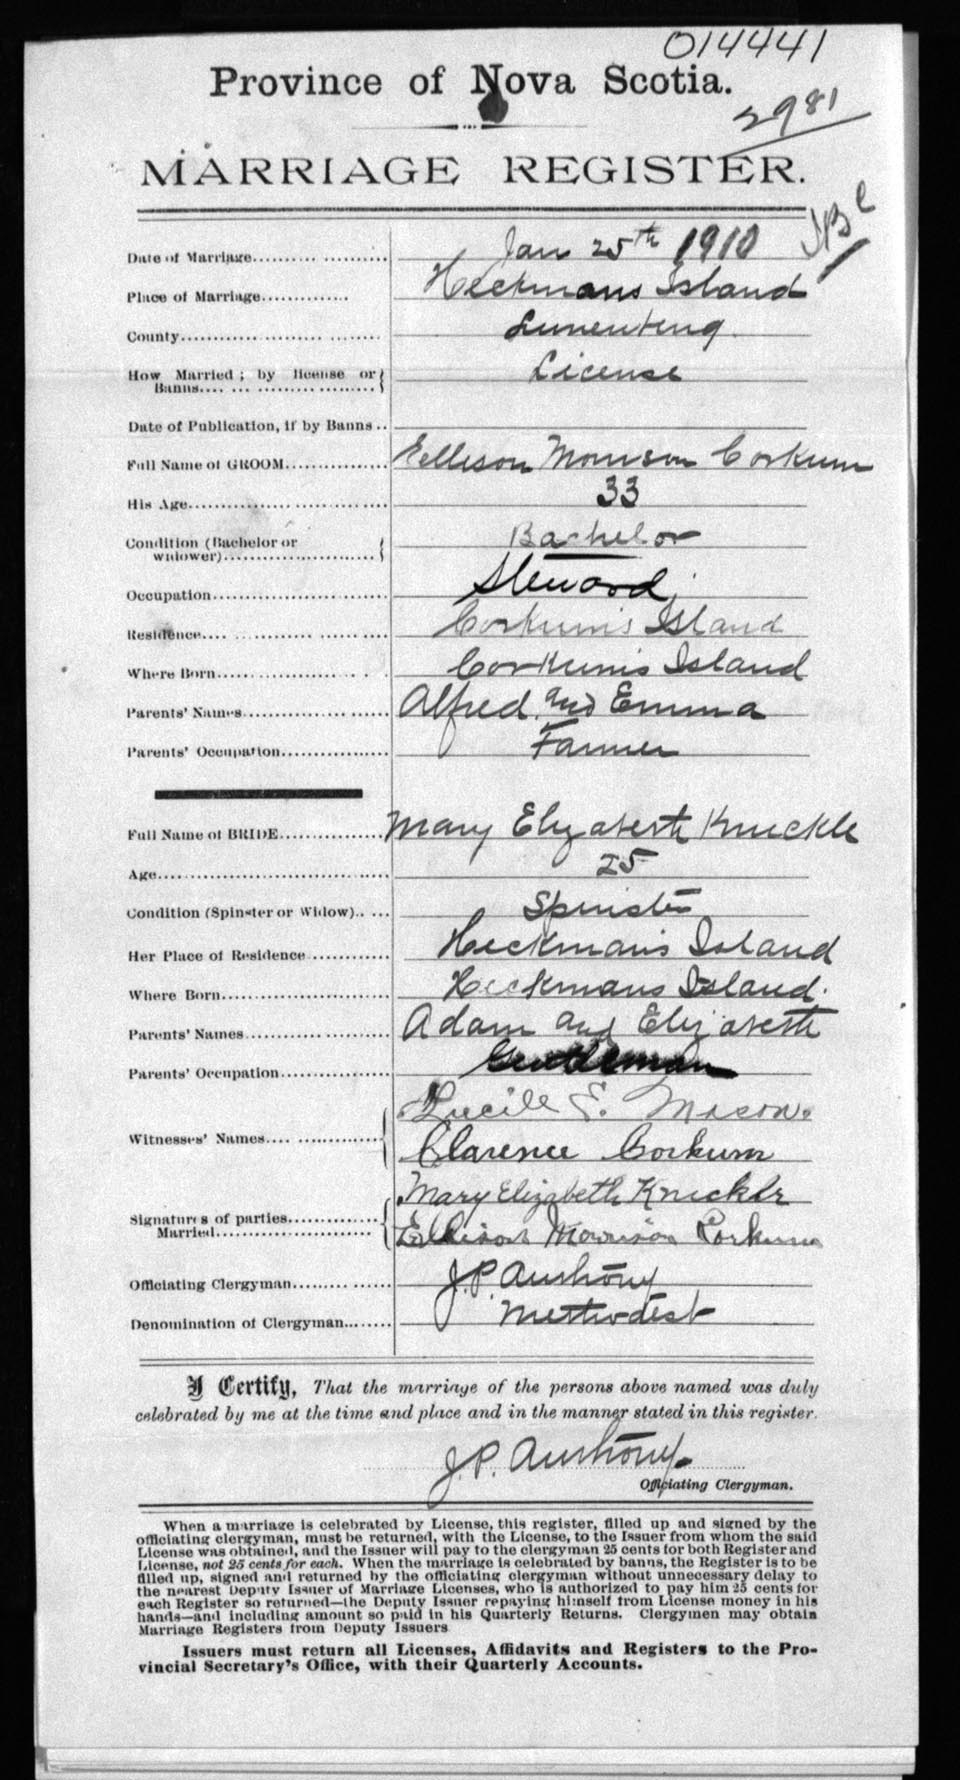 014441
Province of Nova Scotia.
2981
MARRIAGE REGISTER.
Date of Marriage.......... Jan 25th 1910
Place of Marriage.............. Heckmans Island
County........................ Lunenburg.
How Married; by license or
Banns.... ... .................. License
Date of Publication, if by Banns ..
Full Name of GROOM............... Ellison Morrison Corkum
His Age.............................. 33
Condition (Bachelor or
widower)........................ Bachelor
Occupation........................... Steward
Residence.... ....................... Corkum's Island
Where Born........................ Corkum's Island
Parents' Names...................... Alfred and Emma
Parents' Occupation................. Farmer
Full Name of BRIDE............... Mary Elizabeth Knickle
Age.................................... 25
Condition (Spinster or Widow).. ... Spinster
Her Place of Residence ............ Heckman's Island
Where Born......................... Heckmans Island.
Parents' Names...................... Adam and Elizabeth
Parents' Occupation................. Gentleman
Witnesses' Names.... .............. Lucill E. Mason.
Clarence Corkum
Mary Elizabeth Knickle
Signatures of parties...............
Married......................... Ellison Morrison Corkum
Officiating Clergyman......... ...... J.P. Anthony
Denomination of Clergyman......... Methodist
I Certify, That the marriage of the persons above named was duly
celebrated by me at the time and place and in the manner stated in this register.
J.P. Anthony.
Officiating Clergyman.
When a marriage is celebrated by License, this register, filled up and signed by the
officiating clergyman, must be returned, with the License, to the Issuer from whom the said
License was obtained, and the Issuer will pay to the clergyman 25 cents for both Register and
License, not 25 cents for each. When the marriage is celebrated by banns, the Register is to be
filled up, signed and returned by the officiating clergyman without unnecessary delay to
the nearest Deputy Issuer of Marriage Licenses, who is authorized to pay him 25 cents for
each Register so returned—the Deputy Issuer repaying himself from License money in his
hands—and including amount so paid in his Quarterly Returns. Clergymen may obtain
Marriage Registers from Deputy Issuers
Issuers must return all Licenses, Affidavits and Registers to the Pro-
vincial Secretary's Office, with their Quarterly Accounts.